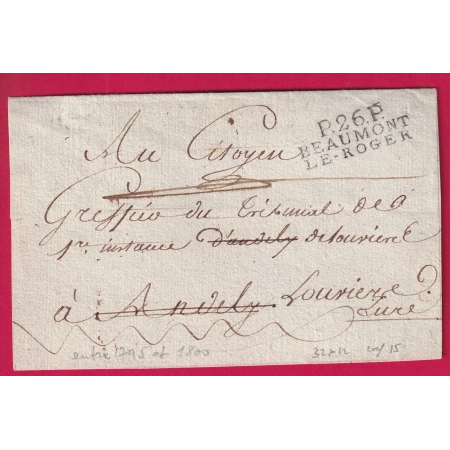 P.26.P.
BEAUMONT
LE-ROGER
Au Citoyen
Greffier du Tribunal de
1re instance d'andely de Louviere
à Andely Louviere
Eure
entre 1795 et 1800
32x12 15